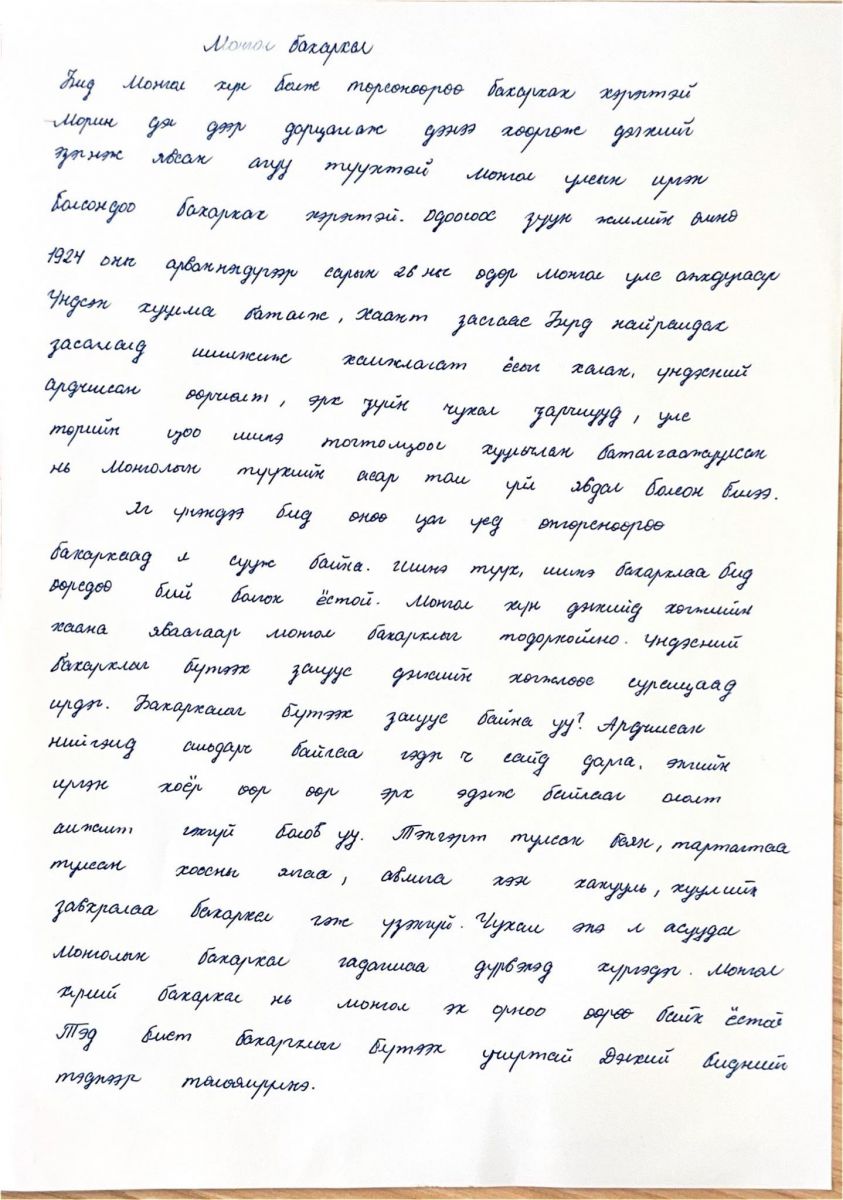 Монгол бахархал
Бид Монгол хүн болж төрсөнөөрөө бахархах хэрэгтэй
Морин дэл дээр дарцаглаж дэлхий хөдөлгөж дэлхийг
эзэгнэж явсан агуу түүхтэй Монгол улсын иргэн
болсондоо бахархах хэрэгтэй. Одоогоос зуун жилийн өмнө
1924 оны арваннэгдүгээр сарын 26 ны өдөр Монгол улс анхдугаар
Үндсэн хуулиа баталж, Хаант засгаас Бүгд найрамдах
засаглалд шилжиж хамжлагат ёсыг халан, үндэсний
ардчилсан өөрчлөлт, эрх зүйн чухал зарчмууд, улс
төрийн цоо шинэ тогтолцоог хуульчлан баталгаажуулсан
нь Монголын түүхийн асар том үйл явдал болсон билээ.
Яг үнэндээ бид өнөө цаг үед өнгөрснөөрөө
бахархаад л сууж байна. Шинэ түүх, шинэ бахархлаа бид
өөрсдөө бий болгох ёстой. Монгол хүн дэлхийд хөгжлийн
хаана яваагаар монгол бахархлыг тодорхойлно. Үндэсний
бахархлыг бүтээх залуус дэлхийн хөгжлөөс суралцаад
ирдэг. Бахархалыг бүтээх залуус байна уу? Ардчилсан
нийгэмд амьдарч байгаа гэдэг ч сайд дарга, энгийн
иргэн хоёр өөр өөр эрх эдэлж байгааг ололт
амжилт гэхгүй болов уу. Тэнгэрт тулсан баян, тартагтаа
тулсан хоосны ялгаа, авлига хээл хахууль, хуулийн
завхралаа бахархал гэж үзэхгүй. Чухам энэ л асуудал
Монголын бахархал гадагшаа дүрвэхэд хүргэдэг. Монгол
хүний бахархал нь монгол эх орноо өөрөө байх ёстой
Тэд бист бахархлыг бүтээх учиртай Дэлхий бидний
тэднээр төлөөлүүлнэ.